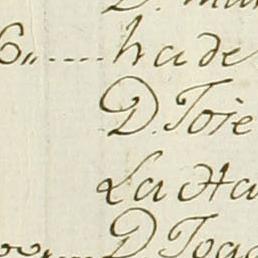 D. Ma
6,, ..... ha de
D. Jose
La Ha
D Joa